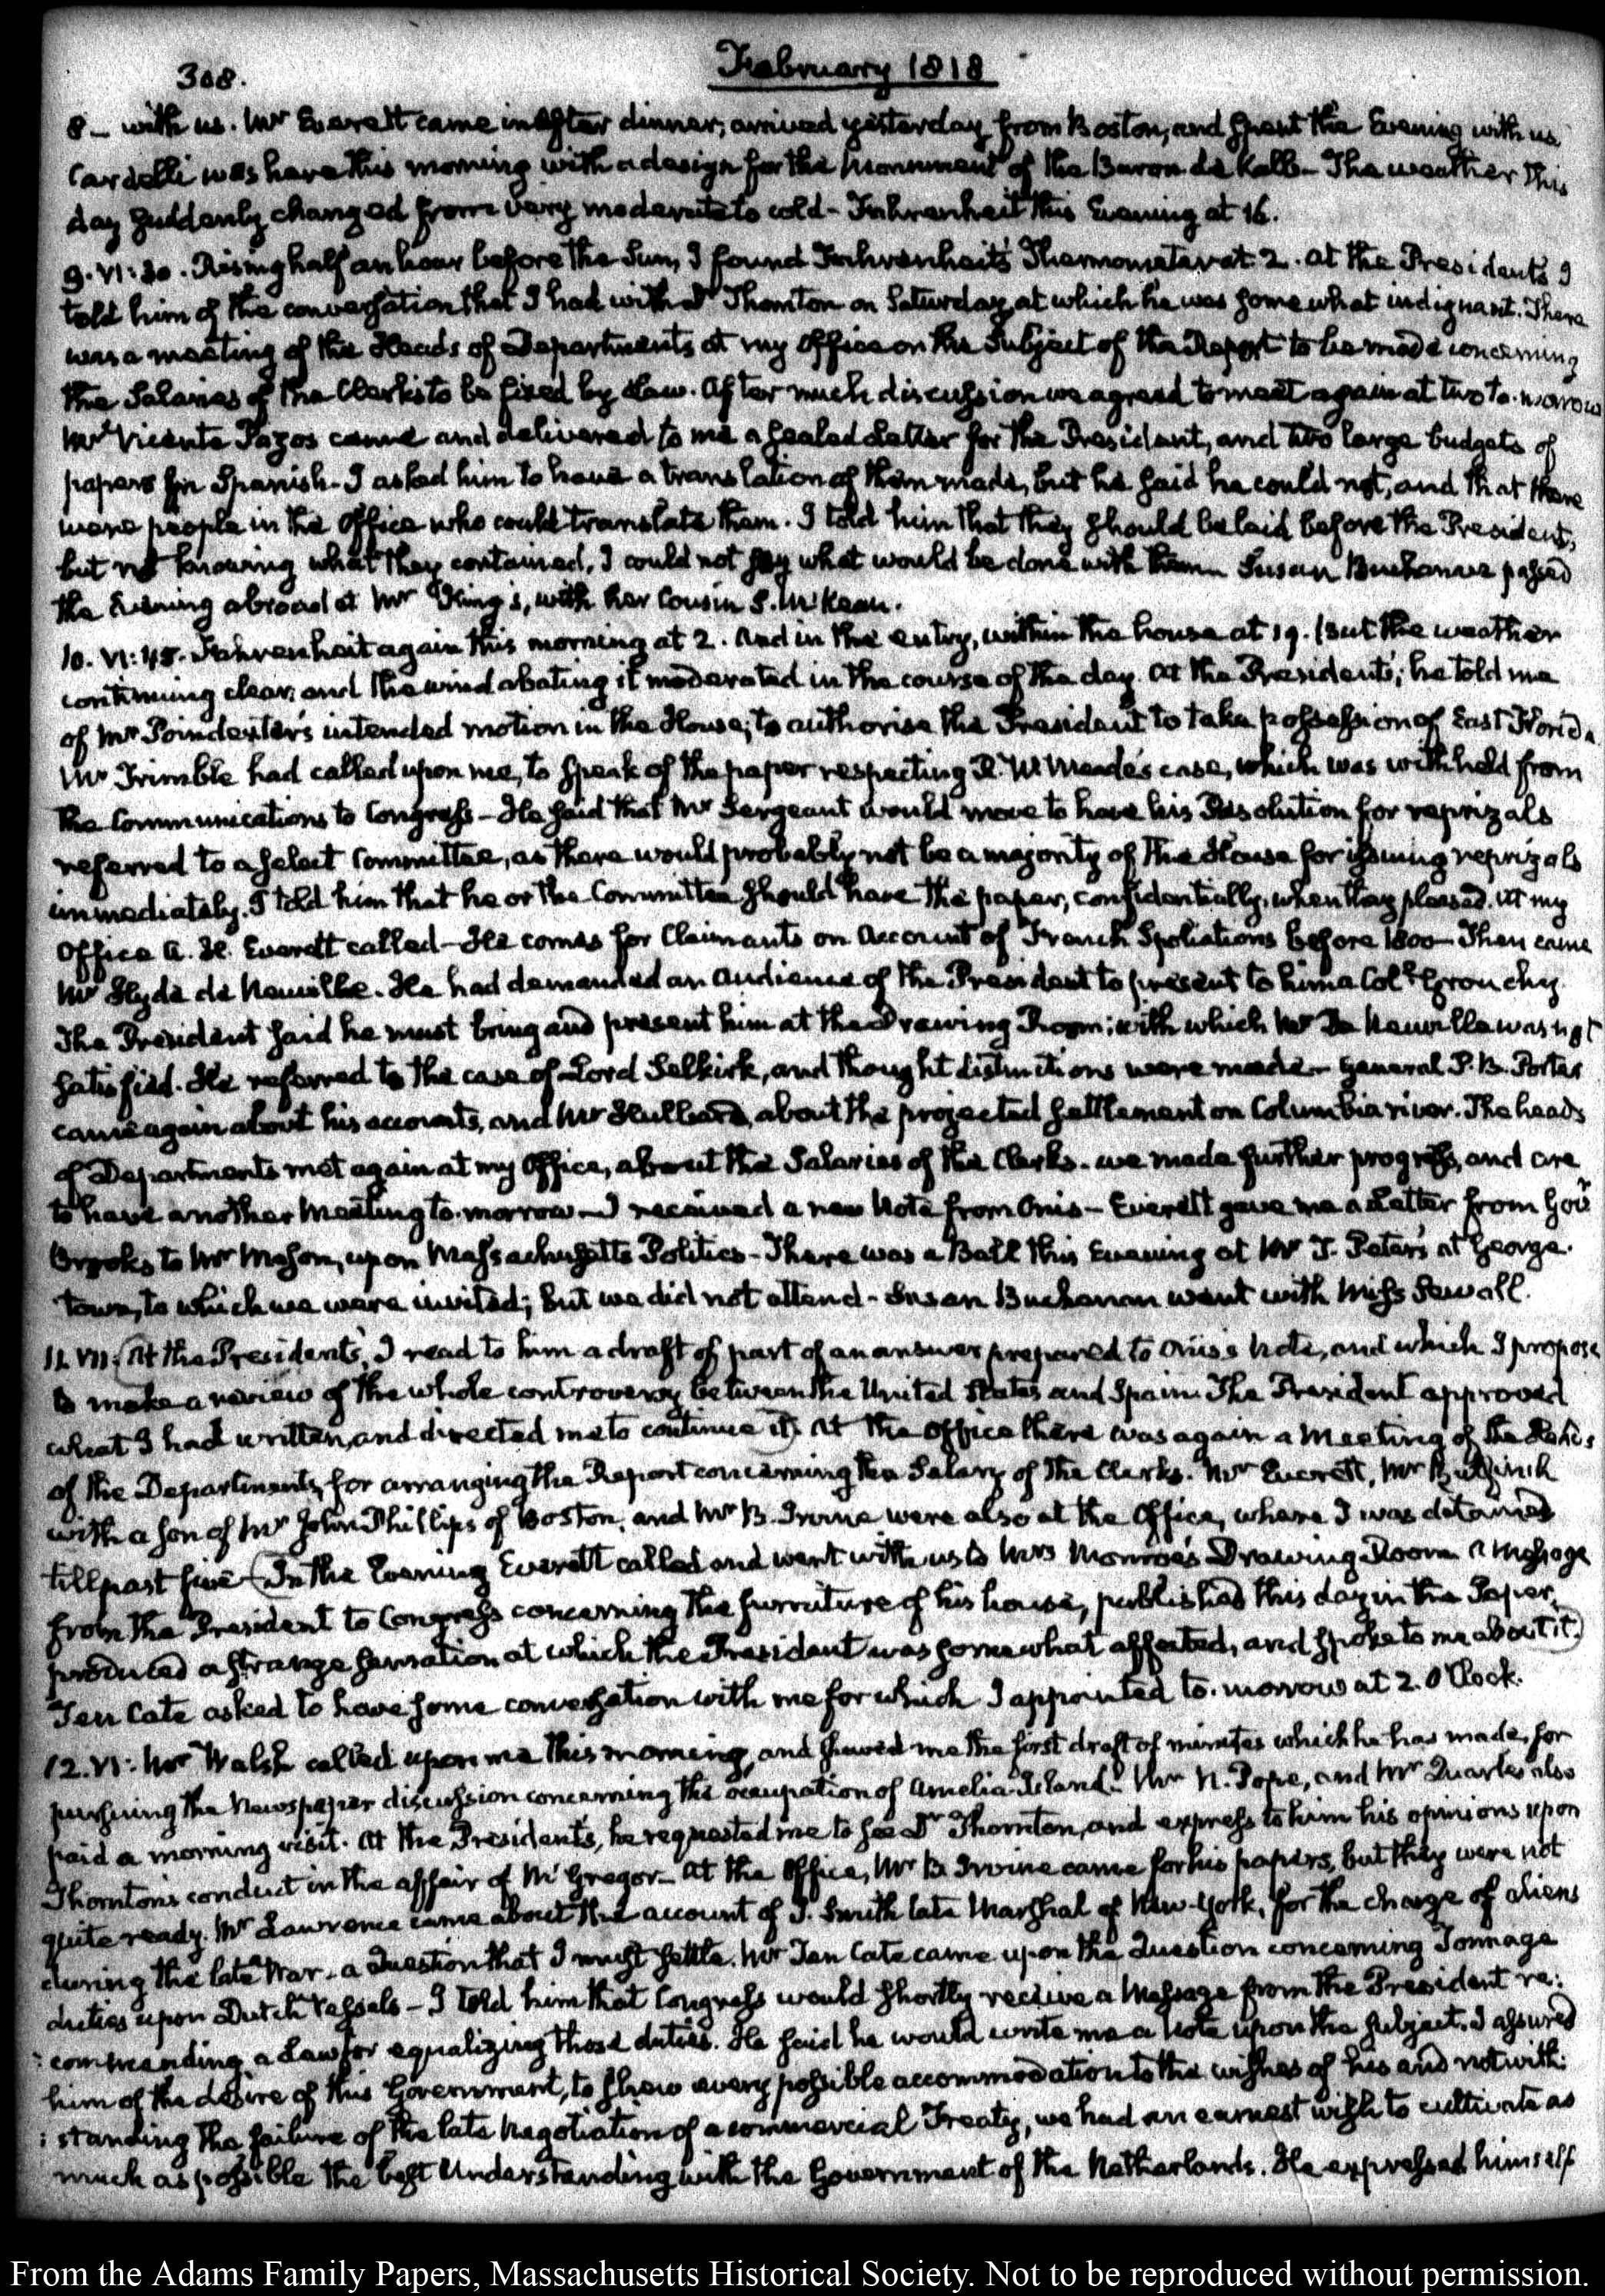 308.
February 1818
8– with us. Mr Everett came in after dinner; arrived yesterday from Boston, and spent the Evening with us
Cardelli was here this morning with a design for the Monument of the Baron de Kalb– The weather this
day suddenly changed from very moderate to cold– Fahrenheit this Evening at 16.
9. VI:30. Rising half an hour before the Sun, I found Fahrenheit's Thermometer at 2. At the President's I
told him of the conversation that I had with Dr Thornton on Saturday, at which he was somewhat indignant. There
was a meeting of the Heads of Departments at my Office on the Subject of the Report to be made concerning
the Salaries of the Clerks to be fixed by Law. After much discussion we agreed to meet again at two to-morrow
Mr Vicente Pazos came and delivered to me a sealed Letter for the President, and two large budgets of
papers in Spanish– I asked him to have a translation of them made, but he said he could not, and that there
were people in the Office who could translate them. I told him that they should be laid before the President,
but not knowing what they contained, I could not say what would be done with them– Susan Buchanan passed
the Evening abroad at Mr King's, with her Cousin S. McKean.
10. VI:45. Fahrenheit again this morning at 2. And in the entry, within the house at 19. But the weather
continuing clear, and the wind abating it moderated in the course of the day. At the President's; he told me
of Mr Poindexter's intended motion in the House; to authorise the President to take possession of East Florida
Mr Trimble had called upon me, to speak of the paper respecting R. W. Meade's case, which was withheld from
the Communications to Congress– He said that Mr Sergeant would move to have his Resolution for reprizals
referred to a select Committee, as there would probably not be a majority of the House for issuing reprizals
immediately. I told him that he or the Committee should have the paper, confidentially, when they pleased. At my
Office A. H. Everett called– He comes for Claimants on Account of French Spoliations before 1800– Then came
Mr Hyde de Neuville. He had demanded an audience of the President to present to him a Coll Grouchy.
The President said he must bring and present him at the Drawing Room; with which Mr De Neuville was not
satisfied. He referred to the case of Lord Selkirk, and thought distinctions were made– General P. B. Porter
came again about his accounts, and Mr Hubbard, about the projected settlement on Columbia river. The heads
of Departments met again at my Office, about the Salaries of the Clerks. we made further progress, and are
to have another Meeting to-morrow– I received a new Note from Onis– Everett gave me a Letter from Govr
Brooks to Mr Mason, upon Massachusetts Politics– There was a Ball this Evening at Mr T. Peter's at George-
town, to which we were invited; but we did not attend– Susan Buchanan went with Miss Sewall.
11. VII: At the President's, I read to him a draft of part of an answer prepared to Onis's Note, and which I propose
to make a review of the whole controversy between the United States and Spain. The President approved
what I had written, and directed me to continue it. At the Office there was again a Meeting of the Heads
of the Departments, for arranging the Report concerning the Salary of the Clerks. Mr Everett, Mr Bulfinch
with a son of Mr John Phillips of Boston, and Mr B. Irvine were also at the Office, where I was detained
till past five– In the Evening Everett called and went with us to Mrs Monroe's Drawing Room A Message
from the President to Congress concerning the furniture of his house, published this day in the Paper,
produced a strange sensation at which the President was somewhat affected, and spoke to me about it.
Ten Cate asked to have some conversation with me for which I appointed to-morrow at 2. O'Clock.
12. VI: Mr Walsh called upon me this morning, and shewed me the first draft of minutes which he has made, for
pursuing the Newspaper discussion concerning the occupation of Amelia Island. Mr N. Pope, and Mr Quarles also
paid a morning visit. At the President's, he requested me to see Dr Thornton, and express to him his opinions upon
Thornton's conduct in the affair of McGregor– At the Office, Mr B. Irvine came for his papers, but they were not
quite ready. Mr Lawrence came about the account of J. Smith late Marshal of New-York, for the charge of aliens
during the late War– a Question that I must settle. Mr Ten Cate came upon the Question concerning Tonnage
duties upon Dutch Vessels– I told him that Congress would shortly receive a Message from the President re-
:commending a Law for equalizing those duties. He said he would write me a Note upon the subject. I assured
him of the desire of this Government, to shew every possible accommodation to the wishes of his and notwith-
:standing the failure of the late Negotiation of a commercial Treaty, we had an earnest wish to cultivate as
much as possible the best Understanding with the Government of the Netherlands. He expressed himself
From the Adams Family Papers, Massachusetts Historical Society. Not to be reproduced without permission.